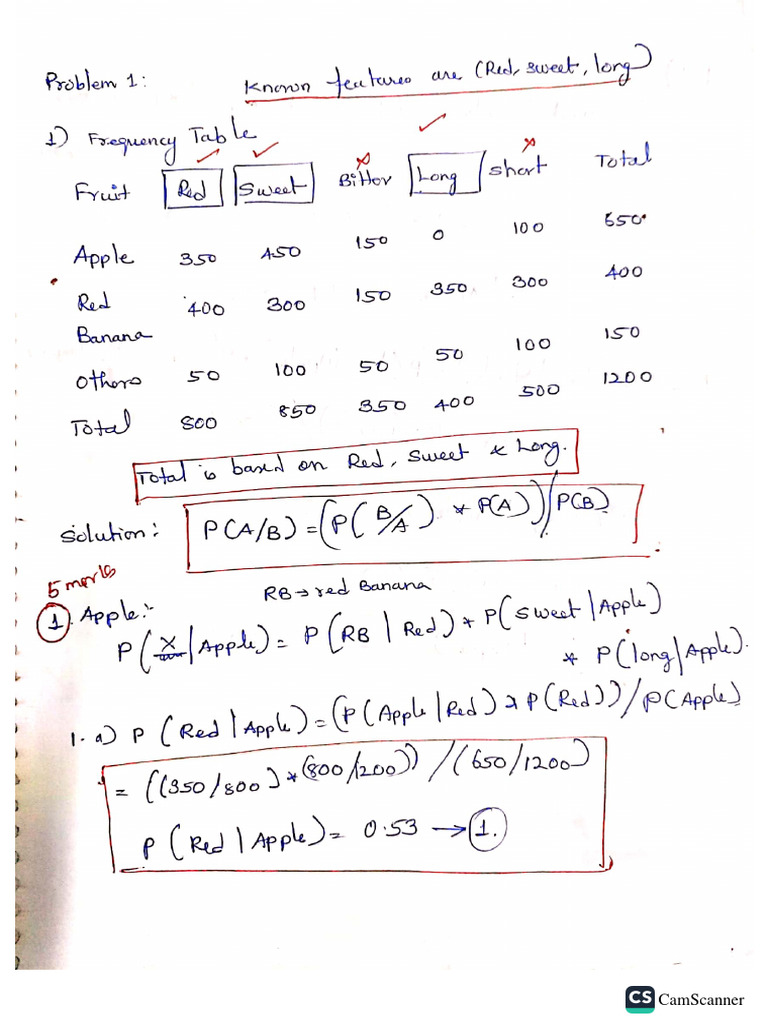 Problem 1: Known features are (Red, sweet, long)
1) Frequency Table
Fruit Red Sweet Bitter Long Short Total
Apple 350 450 150 0 100 650
Red Banana 400 300 150 350 300 400
Others 50 100 50 50 100 150
Total 800 850 350 400 500 1200
Total is based on Red, Sweet & Long.
Solution: P(A/B) = (P(B/A) * P(A))/P(B)
5 marks
RB → red Banana
1. Apple:-
P(X|Apple) = P(RB | Red) * P(Sweet | Apple)
* P(long | Apple).
1. a) P(Red | Apple) = (P(Apple | Red) * P(Red)) / P(Apple)
= ((350/800) * (800/1200)) / (650/1200)
P(Red | Apple) = 0.53 → 1.
CS CamScanner